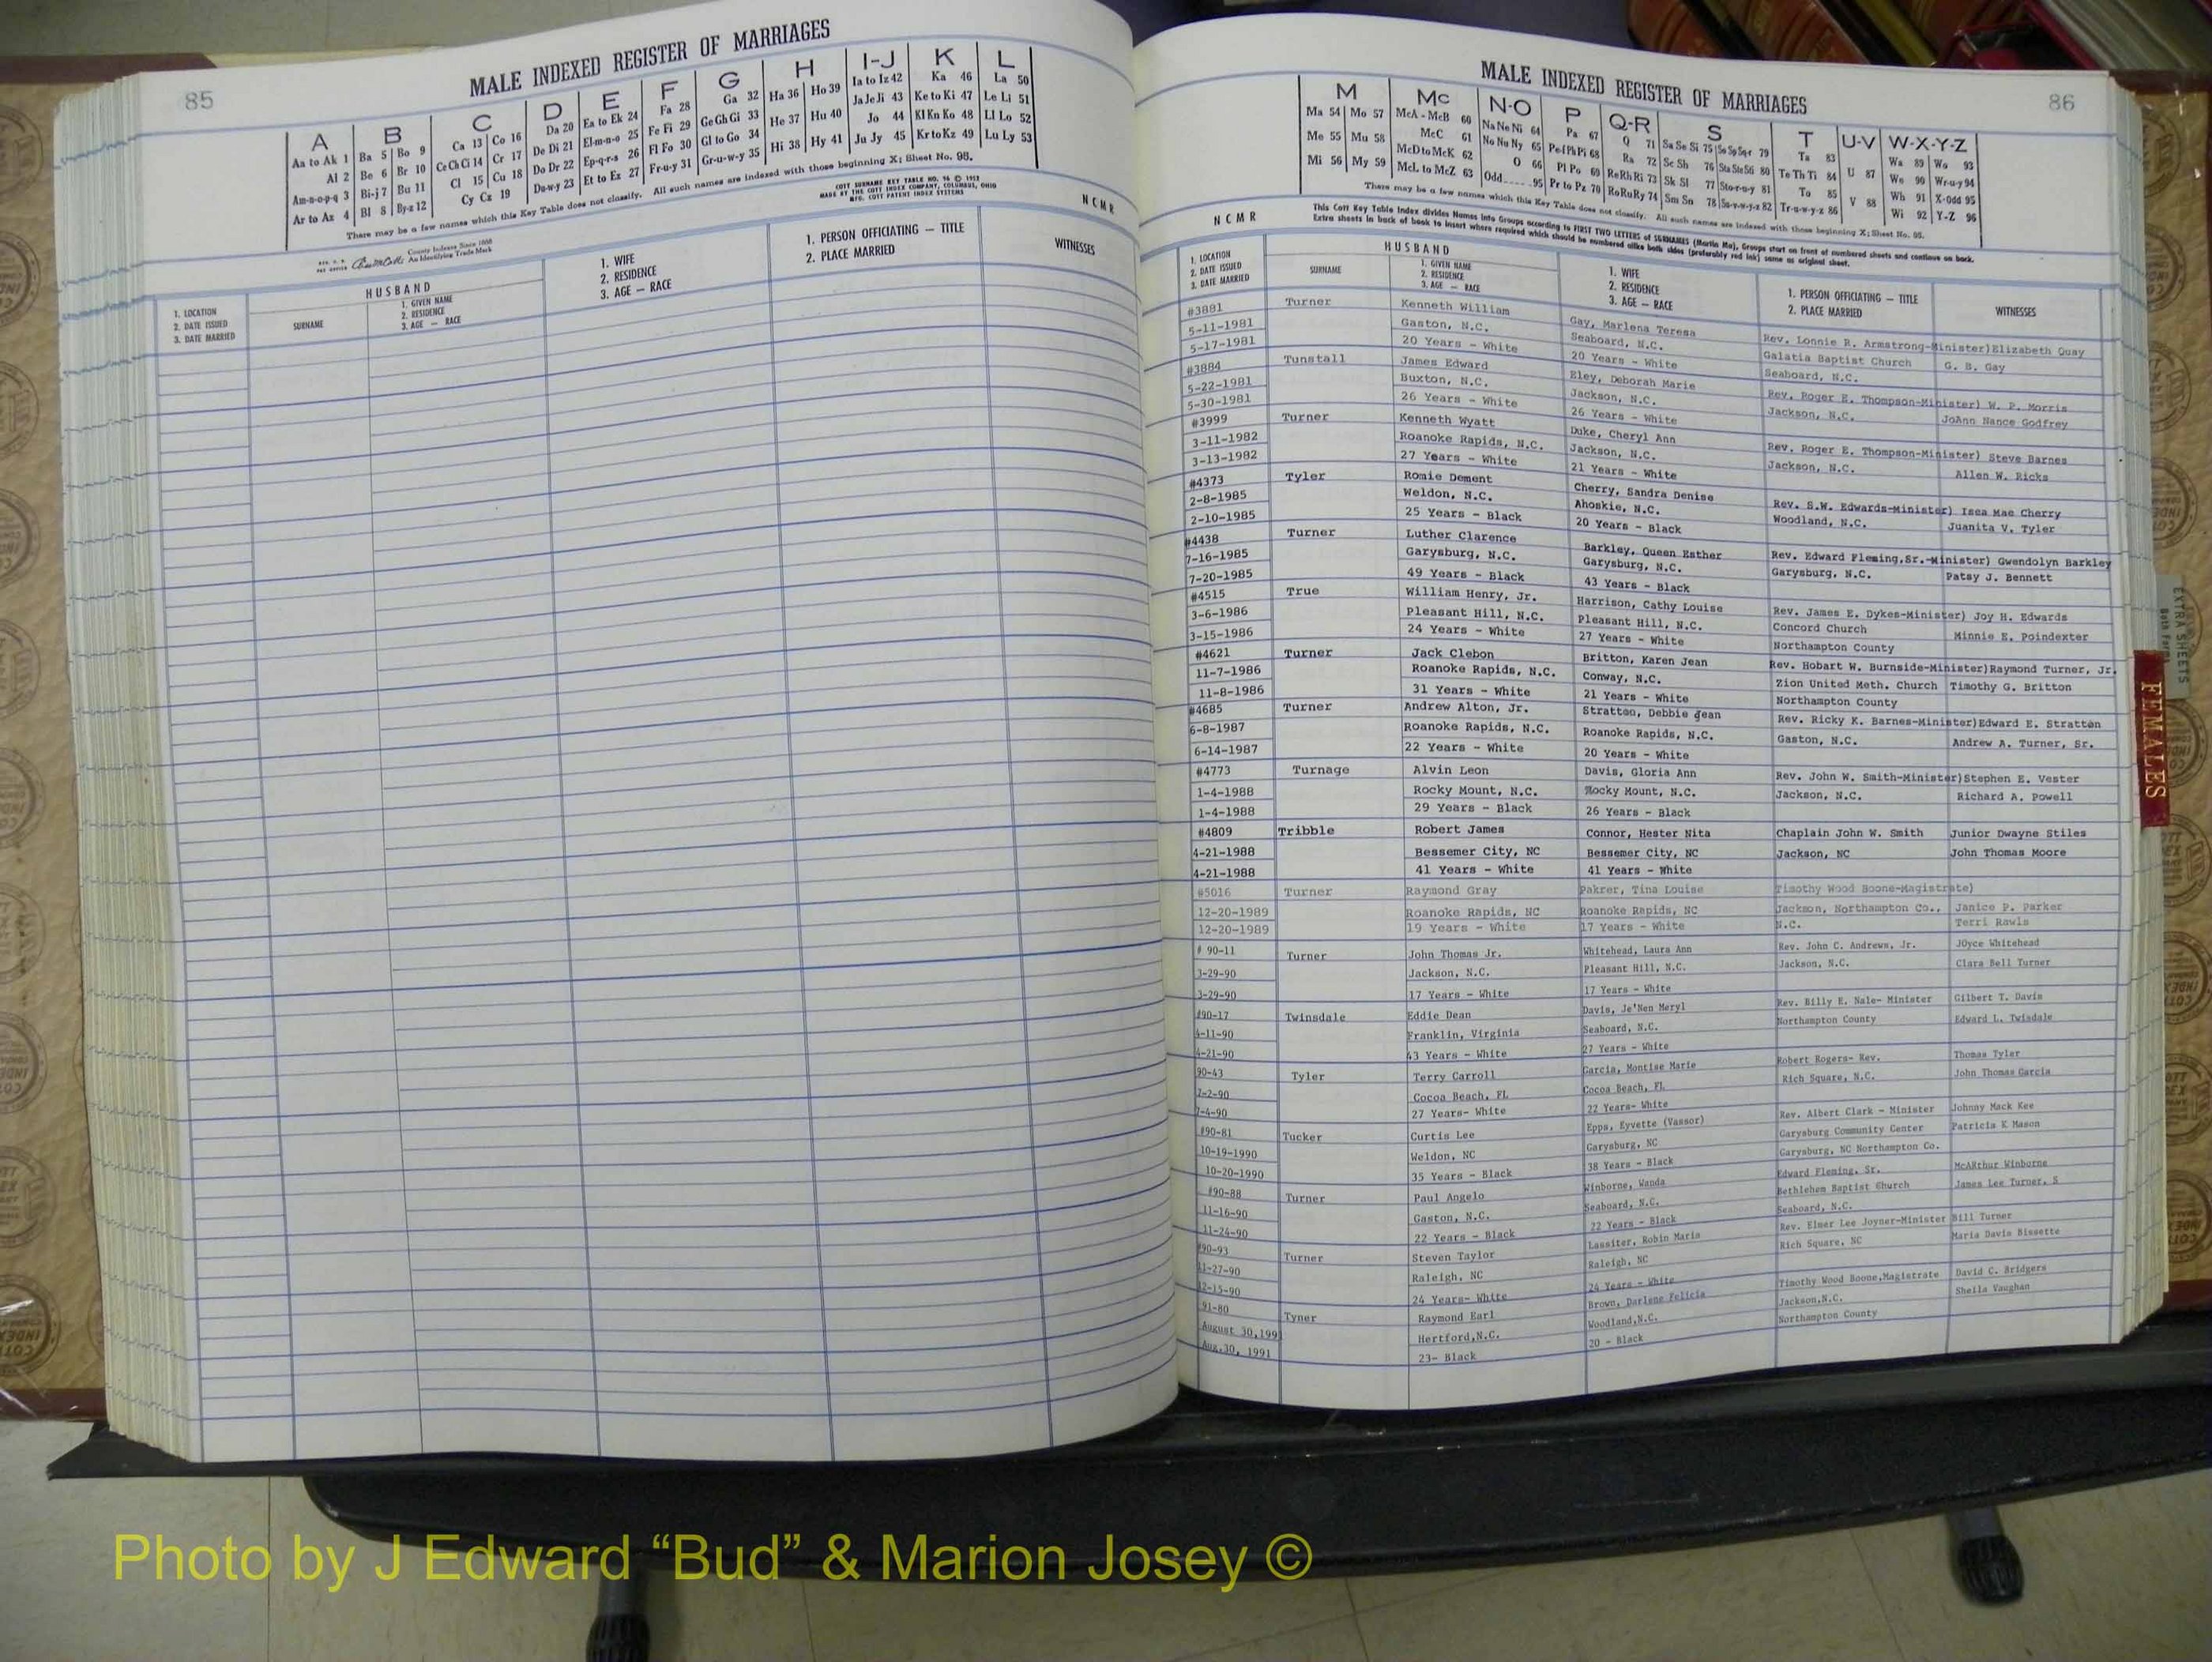 85
MALE INDEXED REGISTER OF MARRIAGES
A B C D E F G H I-J K L
Aa to Ak 1 Ba 5 Bo 9 Ca 13 Co 16 Da 20 Ea to Ek 24 Fa 28 Ga 32 Ha 36 Ho 39 Ia to Iz 42 Ka 46 La 50
Al 2 Be 6 Br 10 Ce Ch Ci 14 Cr 17 De Di 21 El-m-n-o 25 Fe Fi 29 Ge Gh Gi 33 He 37 Hu 40 Ja Je Ji 43 Ke to Ki 47 Le Li 51
Am-n-o-p-q 3 Bi-j 7 Bu 11 Cl 15 Cu 18 Do Dr 22 Ep-q-r-s 26 Fl Fo 30 Gl to Go 34 Hi 38 Hy 41 Jo 44 Kl Kn Ko 48 Ll Lo 52
Ar to Az 4 Bl 8 By-z 12 Cy Cz 19 Du-w-y 23 Et to Ez 27 Fr-u-y 31 Gr-u-w-y 35 Ju Jy 45 Kr to Kz 49 Lu Ly 53
There may be a few names which this Key Table does not classify. All such names are indexed with those beginning X; Sheet No. 95.
COTT SURNAME KEY TABLE NO. 96 © 1952
MADE BY THE COTT INDEX COMPANY, COLUMBUS, OHIO
MFG. COTT PATENT INDEX SYSTEMS
NCMR
County Indexes Since 1888
An Identifying Trade Mark
1. LOCATION
2. DATE ISSUED
3. DATE MARRIED
HUSBAND
SURNAME
1. GIVEN NAME
2. RESIDENCE
3. AGE — RACE
1. WIFE
2. RESIDENCE
3. AGE — RACE
1. PERSON OFFICIATING — TITLE
2. PLACE MARRIED
WITNESSES
86
MALE INDEXED REGISTER OF MARRIAGES
M Mc N-O P Q-R S T U-V W-X-Y-Z
Ma 54 Mo 57 McA - McB 60 Na Ne Ni 64 Pa 67 Q 71 Sa Se Si 75 So Sp Sq-r 79 Ta 83 Wa 89 Wo 93
Me 55 Mu 58 McC 61 No Nu Ny 65 Pe Pf Ph Pi 68 Ra 72 Sc Sh 76 Sta Ste Sti 80 Te Th Ti 84 U 87 We 90 Wr-u-y 94
Mi 56 My 59 McD to McK 62 O 66 Pl Po 69 Re Rh Ri 73 Sk Sl 77 Sto-r-u-y 81 To 85 V 88 Wh 91 X-Odd 95
McL to McZ 63 Odd.....95 Pr to Pz 70 Ro Ru Ry 74 Sm Sn 78 Su-v-w-y-z 82 Tr-u-w-y-z 86 Wi 92 Y-Z 96
There may be a few names which this Key Table does not classify. All such names are indexed with those beginning X; Sheet No. 95.
NCMR
This Cott Key Table Index divides Names into Groups according to FIRST TWO LETTERS of SURNAMES (Martin Ma), Groups start on front of numbered sheets and continue on back.
Extra sheets in back of book to insert where required which should be numbered alike both sides (preferably red ink) same as original sheet.
1. LOCATION
2. DATE ISSUED
3. DATE MARRIED
HUSBAND
SURNAME
1. GIVEN NAME
2. RESIDENCE
3. AGE — RACE
1. WIFE
2. RESIDENCE
3. AGE — RACE
1. PERSON OFFICIATING — TITLE
2. PLACE MARRIED
WITNESSES
#3881 Turner Kenneth William Gay, Marlena Teresa Rev. Lonnie R. Armstrong-Minister) Elizabeth Quay
5-11-1981 Gaston, N.C. Seaboard, N.C. Galatia Baptist Church G. B. Gay
5-17-1981 20 Years - White 20 Years - White Seaboard, N.C.
#3884 Tunstall James Edward Eley, Deborah Marie Rev. Roger E. Thompson-Minister) W. P. Morris
5-22-1981 Buxton, N.C. Jackson, N.C. Jackson, N.C. JoAnn Nance Godfrey
5-30-1981 26 Years - White 26 Years - White
#3999 Turner Kenneth Wyatt Duke, Cheryl Ann Rev. Roger E. Thompson-Minister) Steve Barnes
3-11-1982 Roanoke Rapids, N.C. Jackson, N.C. Jackson, N.C. Allen W. Ricks
3-13-1982 27 Years - White 21 Years - White
#4373 Tyler Romie Dement Cherry, Sandra Denise Rev. S.W. Edwards-Minister) Isea Mae Cherry
2-8-1985 Weldon, N.C. Ahoskie, N.C. Woodland, N.C. Juanita V. Tyler
2-10-1985 25 Years - Black 20 Years - Black
#4438 Turner Luther Clarence Barkley, Queen Esther Rev. Edward Fleming,Sr.-Minister) Gwendolyn Barkley
7-16-1985 Garysburg, N.C. Garysburg, N.C. Garysburg, N.C. Patsy J. Bennett
7-20-1985 49 Years - Black 43 Years - Black
#4515 True William Henry, Jr. Harrison, Cathy Louise Rev. James E. Dykes-Minister) Joy H. Edwards
3-6-1986 Pleasant Hill, N.C. Pleasant Hill, N.C. Concord Church Minnie E. Poindexter
3-15-1986 24 Years - White 27 Years - White Northampton County
#4621 Turner Jack Clebon Britton, Karen Jean Rev. Hobart W. Burnside-Minister) Raymond Turner, Jr.
11-7-1986 Roanoke Rapids, N.C. Conway, N.C. Zion United Meth. Church Timothy G. Britton
11-8-1986 31 Years - White 21 Years - White Northampton County
#4685 Turner Andrew Alton, Jr. Stratton, Debbie Jean Rev. Ricky K. Barnes-Minister) Edward E. Stratton
6-8-1987 Roanoke Rapids, N.C. Roanoke Rapids, N.C. Gaston, N.C. Andrew A. Turner, Sr.
6-14-1987 22 Years - White 20 Years - White
#4773 Turnage Alvin Leon Davis, Gloria Ann Rev. John W. Smith-Minister) Stephen E. Vester
1-4-1988 Rocky Mount, N.C. Rocky Mount, N.C. Jackson, N.C. Richard A. Powell
1-4-1988 29 Years - Black 26 Years - Black
#4809 Tribble Robert James Connor, Hester Nita Chaplain John W. Smith Junior Dwayne Stiles
4-21-1988 Bessemer City, NC Bessemer City, NC Jackson, NC John Thomas Moore
4-21-1988 41 Years - White 41 Years - White
#5016 Turner Raymond Gray Pakrer, Tina Louise Timothy Wood Boone-Magistrate)
12-20-1989 Roanoke Rapids, NC Roanoke Rapids, NC Jackson, Northampton Co., Janice P. Parker
12-20-1989 19 Years - White 17 Years - White N.C. Terri Rawls
# 90-11 Turner John Thomas Jr. Whitehead, Laura Ann Rev. John C. Andrews, Jr. JOyce Whitehead
3-29-90 Jackson, N.C. Pleasant Hill, N.C. Jackson, N.C. Clara Bell Turner
3-29-90 17 Years - White 17 Years - White
#90-17 Twinsdale Eddie Dean Davis, Je'Nen Meryl Rev. Billy E. Nale- Minister Gilbert T. Davis
4-11-90 Franklin, Virginia Seaboard, N.C. Northampton County Edward L. Twisdale
4-21-90 43 Years - White 27 Years - White
90-43 Tyler Terry Carroll Garcia, Montise Marie Robert Rogers- Rev. Thomas Tyler
7-2-90 Cocoa Beach, FL Cocoa Beach, FL Rich Square, N.C. John Thomas Garcia
7-4-90 27 Years- White 22 Years- White
#90-81 Tucker Curtis Lee Epps, Eyvette (Vassor) Rev. Albert Clark - Minister Johnny Mack Kee
10-19-1990 Weldon, NC Garysburg, NC Garysburg Community Center Patricia K Mason
10-20-1990 35 Years - Black 38 Years - Black Garysburg, NC Northampton Co.
#90-88 Turner Paul Angelo Winborne, Wanda Edward Fleming, Sr. McARthur Winborne
11-16-90 Gaston, N.C. Seaboard, N.C. Bethlehem Baptist Church James Lee Turner, S
11-24-90 22 Years - Black 22 Years - Black Seaboard, N.C.
#90-93 Turner Steven Taylor Lassiter, Robin Maria Rev. Elmer Lee Joyner-Minister Bill Turner
11-27-90 Raleigh, NC Raleigh, NC Rich Square, NC Maria Davis Bissette
12-15-90 24 Years- White 24 Years - White
91-80 Tyner Raymond Earl Brown, Darlene Felicia Timothy Wood Boone,Magistrate David C. Bridgers
August 30,1991 Hertford,N.C. Woodland,N.C. Jackson,N.C. Sheila Vaughan
Aug.30, 1991 23- Black 20 - Black Northampton County
EXTRA SHEETS
FEMALES
Photo by J Edward “Bud” & Marion Josey ©